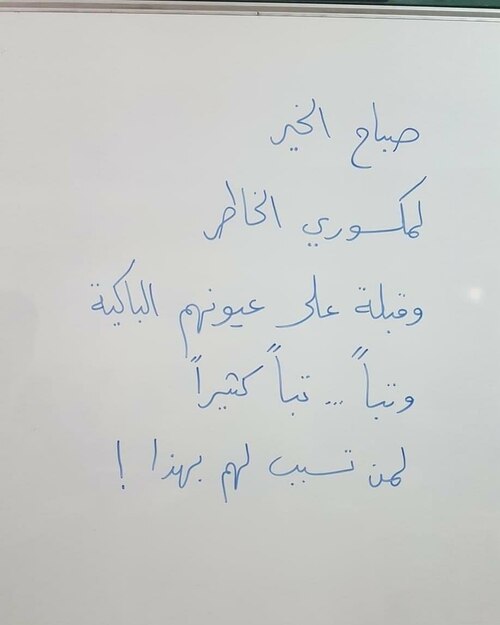 صباح الخير
لمكسوري الخاطر
وقبلة على عيونهم الباكية
وتباً ... تباً كثيراً
لمن تسبب لهم بهذا !